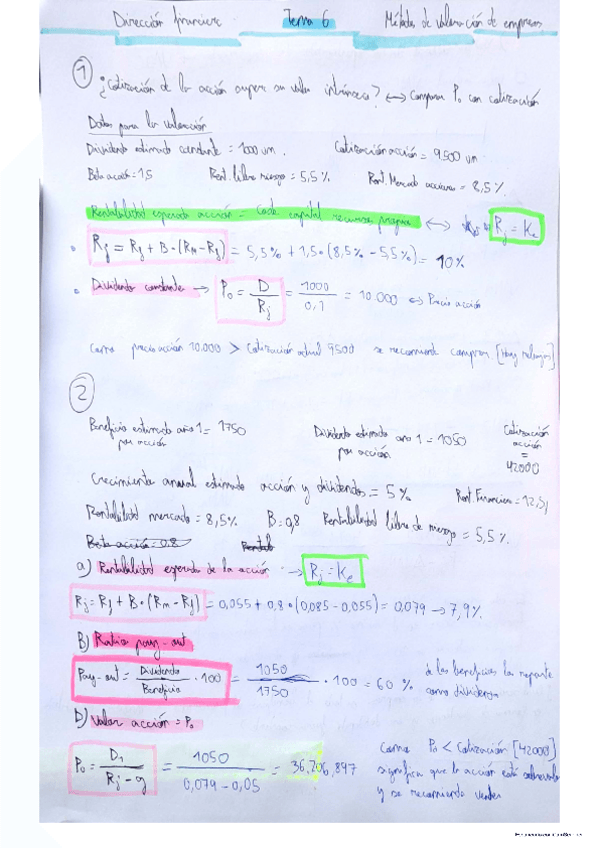 Dirección financiera Tema 6 Métodos de valoración de empresas
1
¿Cotización de la acción supera su valor intrínseco? ↔ Comparar P₀ con cotización
Datos para la valoración
Dividendo estimado constante = 1000 um. Cotización acción = 9.500 um
Beta acción = 1,5 Rent. libre riesgo = 5,5% Rent. Mercado acciones = 8,5%.
Rentabilidad esperada acción = Coste capital recursos propios ↔ Rj = Ke
• Rj = Rf + B·(Rm-Rf) = 5,5% + 1,5·(8,5% - 5,5%) = 10%
• Dividendo constante → P₀ = D / Rj = 1000 / 0,1 = 10.000 ⇔ Precio acción
Como precio acción 10.000 > Cotización actual 9500 se recomienda comprar.
2
Beneficio estimado año 1 = 1750 Dividendo estimado año 1 = 1050 Cotización
por acción por acción acción
=
42000
Crecimiento anual estimado acción y dividendos = 5% Rent. Financiera = 12,5%
Rentabilidad mercado = 8,5% B = 0,8 Rentabilidad libre de riesgo = 5,5%.
Beta acción = 0.8
a) Rentabilidad esperada de la acción → Rj = Ke
Rj = Rf + B·(Rm-Rf) = 0,055 + 0,8·(0,085 - 0,055) = 0,079 → 7,9%.
B) Ratio pay-out
Pay-out = Dividendo / Beneficio · 100 = 1050 / 1750 · 100 = 60 % de los beneficios los reparte
como dividendo
D) Valor acción = P₀
P₀ = D₁ / Rj - g = 1050 / 0,079 - 0,05 = 36,206,897 Como P₀ < Cotización [42000]
significa que la acción está
y se recomienda vender